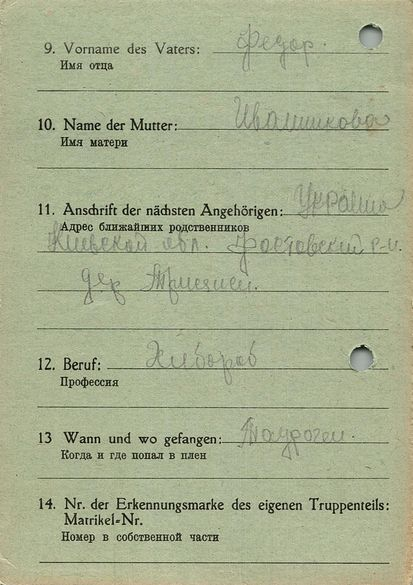 9. Vorname des Vaters: Федор.
Имя отца
10. Name der Mutter: Ивашинкова
Имя матери
11. Anschrift der nächsten Angehörigen: Украина
Адрес ближайших родственников
Киевской обл. Фастовский р-н.
дер
12. Beruf:
Профессия
13 Wann und wo gefangen: Тауроген.
Когда и где попал в плен
14. Nr. der Erkennungsmarke des eigenen Truppenteils:
Matrikel-Nr.
Номер в собственной части